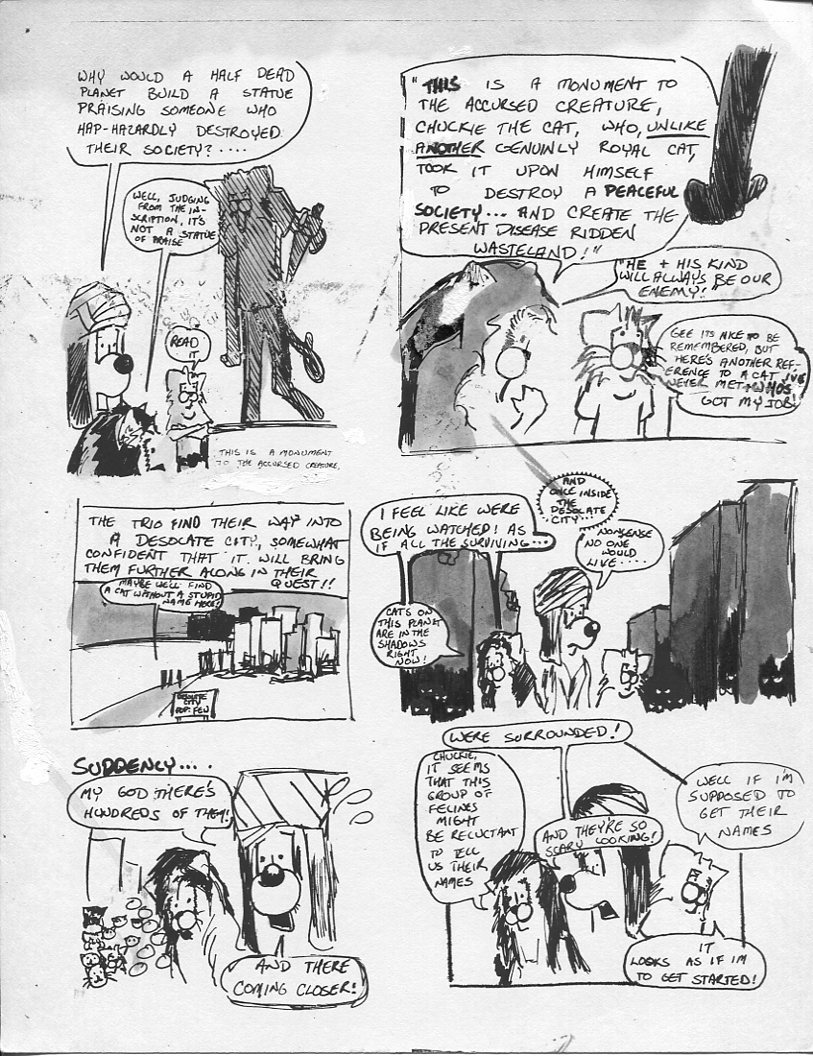 WHY WOULD A HALF DEAD
PLANET BUILD A STATUE
PRAISING SOMEONE WHO
HAP-HAZARDLY DESTROYED
THEIR SOCIETY?....
WELL, JUDGING
FROM THE IN-
SCRIPTION, IT'S
NOT A STATUE
OF PRAISE
READ
IT
THIS IS A MONUMENT
TO THE ACCURSED CREATURE,
"THIS IS A MONUMENT TO
THE ACCURSED CREATURE,
CHUCKIE THE CAT, WHO, UNLIKE
ANOTHER GENUINLY ROYAL CAT,
TOOK IT UPON HIMSELF
TO DESTROY A PEACEFUL
SOCIETY... AND CREATE THE
PRESENT DISEASE RIDDEN
WASTELAND!"
"HE + HIS KIND
WILL ALWAYS BE OUR
ENEMY!
GEE ITS NICE TO BE
REMEMBERED, BUT
HERE'S ANOTHER REF-
ERENCE TO A CAT I'VE
NEVER MET + WHO'S
GOT MY JOB!
THE TRIO FIND THEIR WAY INTO
A DESOLATE CITY, SOMEWHAT
CONFIDENT THAT IT WILL BRING
THEM FURTHER ALONG IN THEIR
QUEST!!
MAYBE WE'LL FIND
A CAT WITHOUT A STUPID
NAME HERE!
DESOLATE
CITY
POP: FEW
AND
ONCE INSIDE
THE
DESOLATE
CITY...
I FEEL LIKE WERE
BEING WATCHED! AS
IF ALL THE SURVIVING...
NONSENSE
NO ONE
WOULD
LIVE....
CATS ON
THIS PLANET
ARE IN THE
SHADOWS
RIGHT
NOW!
SUDDENLY....
MY GOD THERE'S
HUNDREDS OF THEM!
AND THERE
COMING CLOSER!
WERE SURROUNDED!
CHUCKIE,
IT SEEMS
THAT THIS
GROUP OF
FELINES
MIGHT
BE RELUCTANT
TO TELL
US THEIR
NAMES
AND THEY'RE SO
SCARY LOOKING!
WELL IF I'M
SUPPOSED TO
GET THEIR
NAMES
IT
LOOKS AS IF I'M
TO GET STARTED!